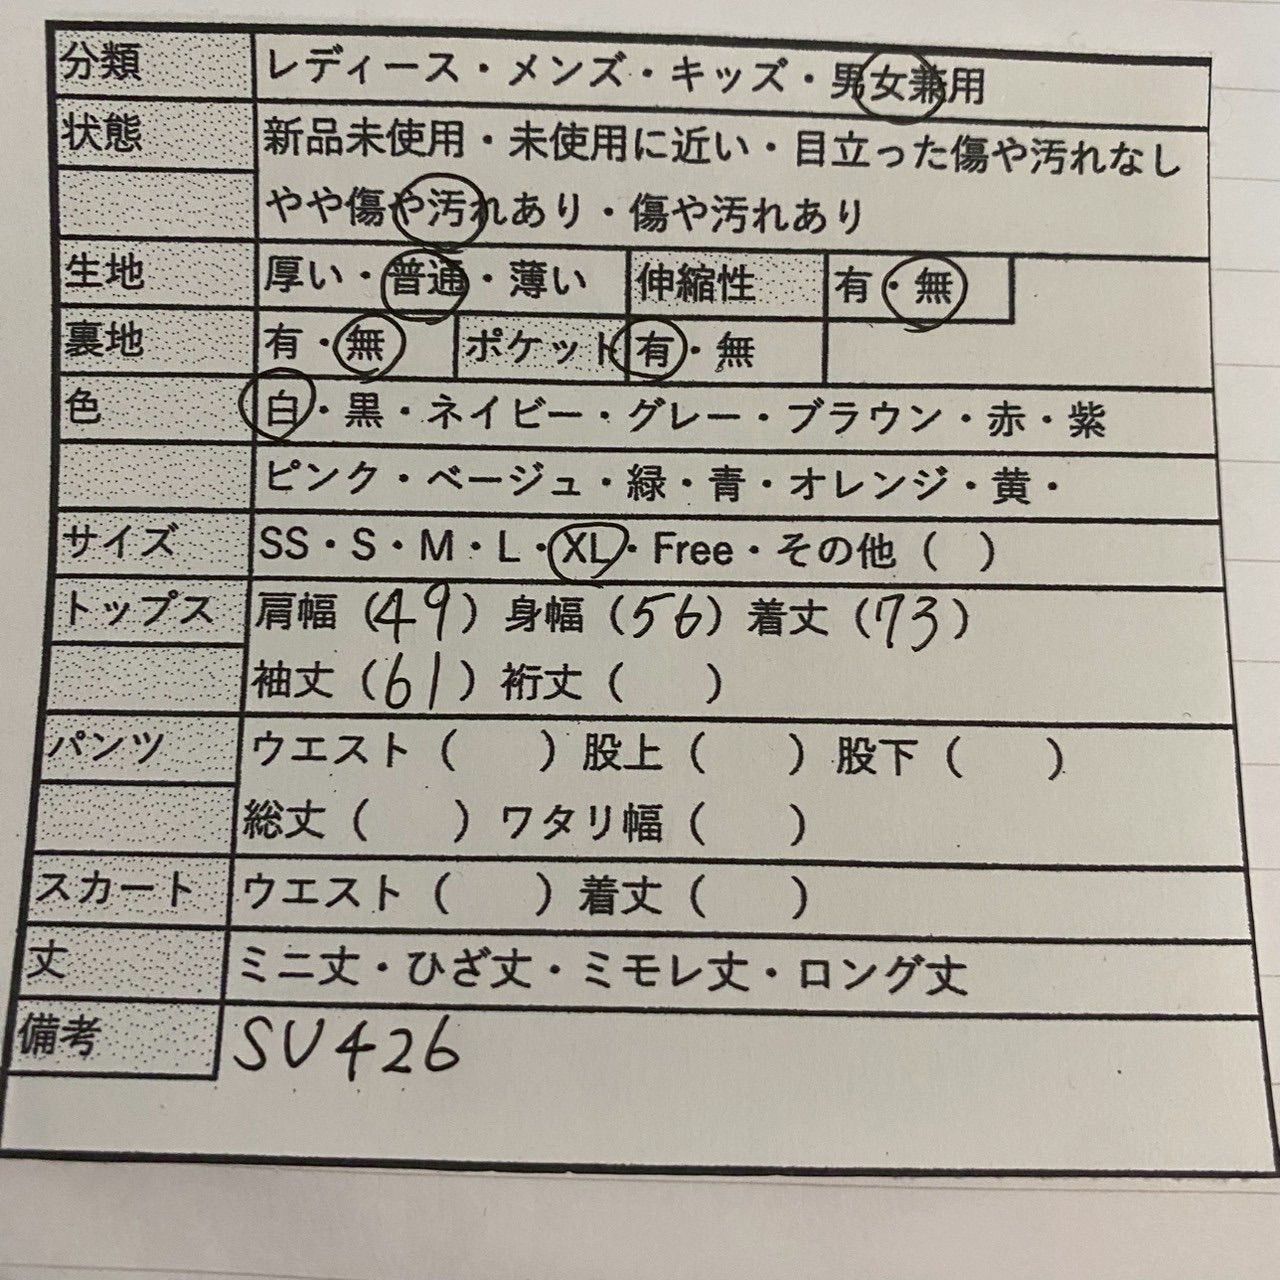 分類 レディース・メンズ・キッズ・男女兼用
状態 新品未使用・未使用に近い・目立った傷や汚れなし
やや傷や汚れあり・傷や汚れあり
生地 厚い・普通・薄い 伸縮性 有・無
裏地 有・無 ポケット 有・無
色 白・黒・ネイビー・グレー・ブラウン・赤・紫
ピンク・ベージュ・緑・青・オレンジ・黄・
サイズ SS・S・M・L・XL・Free・その他（ ）
トップス 肩幅（49）身幅（56）着丈（73）
袖丈（61）裄丈（ ）
パンツ ウエスト（ ）股上（ ）股下（ ）
総丈（ ）ワタリ幅（ ）
スカート ウエスト（ ）着丈（ ）
丈 ミニ丈・ひざ丈・ミモレ丈・ロング丈
備考 SU426